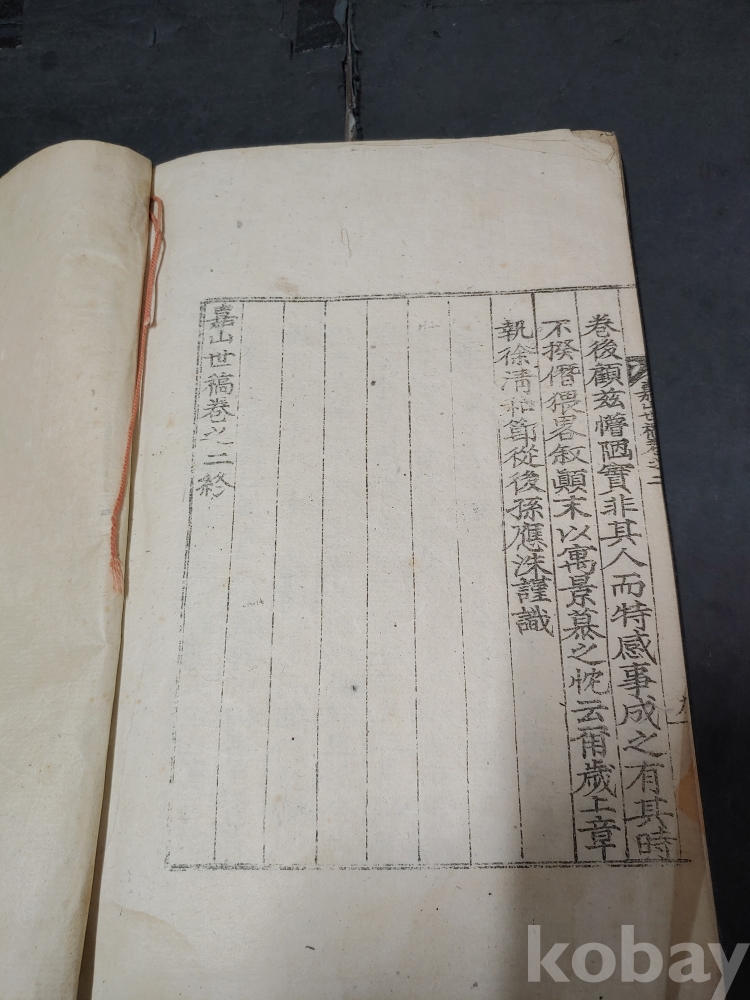 嘉山世稿卷之二
卷後顧茲懵陋實非其人而特感事成之有其時
不揆僭猥畧叙顚末以寓景慕之忱云爾歲上章
執徐淸和節從後孫應洙謹識
嘉山世稿卷之二終
kobay